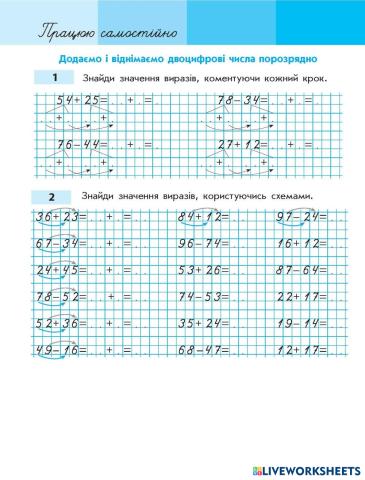 Працюю самостійно
Додаємо і віднімаємо двоцифрові числа порозрядно
1 Знайди значення виразів, коментуючи кожний крок.
54+25=. .+.=. 78-34=. .+.=.
. .+. .+. . .+. .+.
76-44=. .+.=. 27+12=. .+.=.
. .+. .+. . .+. .+.
2 Знайди значення виразів, користуючись схемами.
36+23=. .+.=. 84+12=. .+.=. 97-24=
67-34=. .+.=. 96-74= 16+12=
24+45=. .+.=. 53+26= 87-64=
78-52=. .+.=. 74-53= 22+17=
52+36=. .+.=. 35+24= 19-14=
49-16=. .+.=. 68-47= 12+17=
LIVEWORKSHEETS